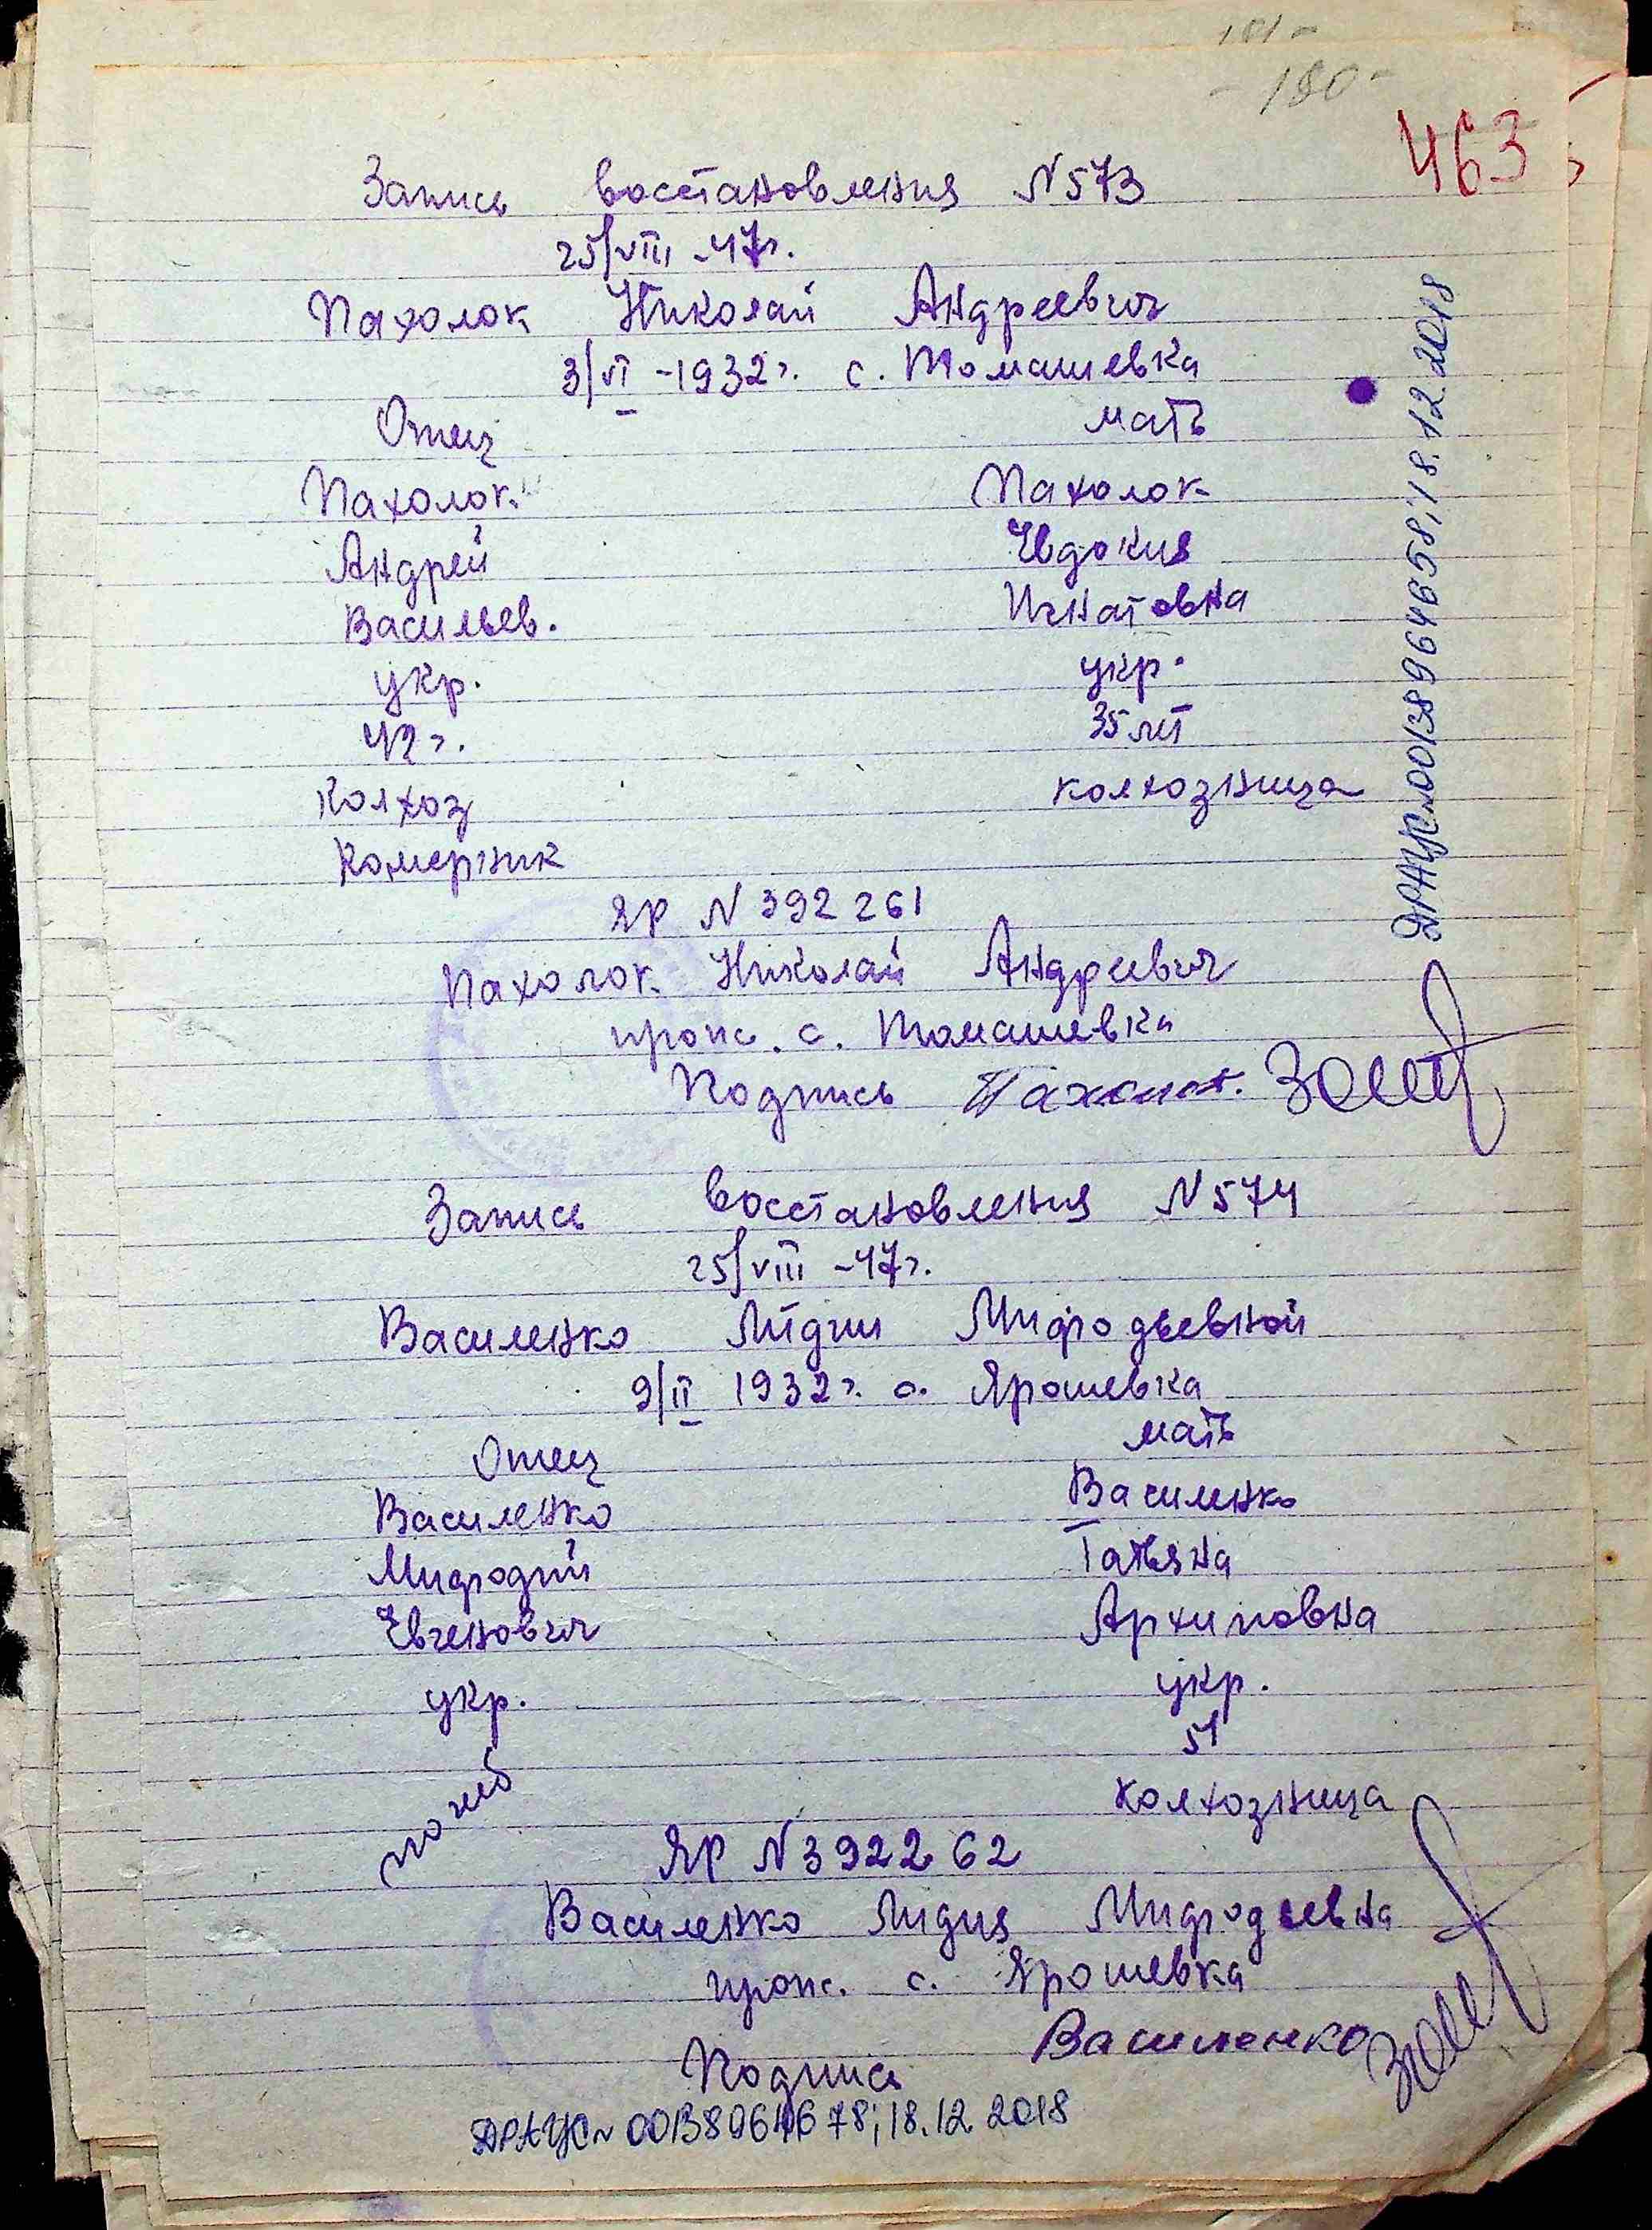 181-
-180-
463
Запись восстановления N573
25/VIII -47г.
Пахолок Николай Андреевич
3/VI -1932г. с. Томашевка
Отец мать
Пахолок Пахолок
Андрей Евдокия
Васильев. Игнатовна
укр. укр.
42 г. 35 лет
Колхоз колхозница
Комерник
ЯР N 392261
Пахолок Николай Андреевич
прож. с. Томашевка
Подпись Пахолок.
ДРАЦС 00138964658; 18.12.2018
Запись восстановления N574
25/VIII -47г.
Василенко Лидии Мифодьевной
9/II 1932г. с. Ярошевка
Отец мать
Василенко Василенко
Мифодий Татьяна
Евгенович Архиповна
укр. укр.
51
погиб колхозница
ЯР N392262
Василенко Лидия Мифодьевна
прож. с. Ярошевка
Подпись Василенко
ДРАЦС 00138964678; 18.12.2018